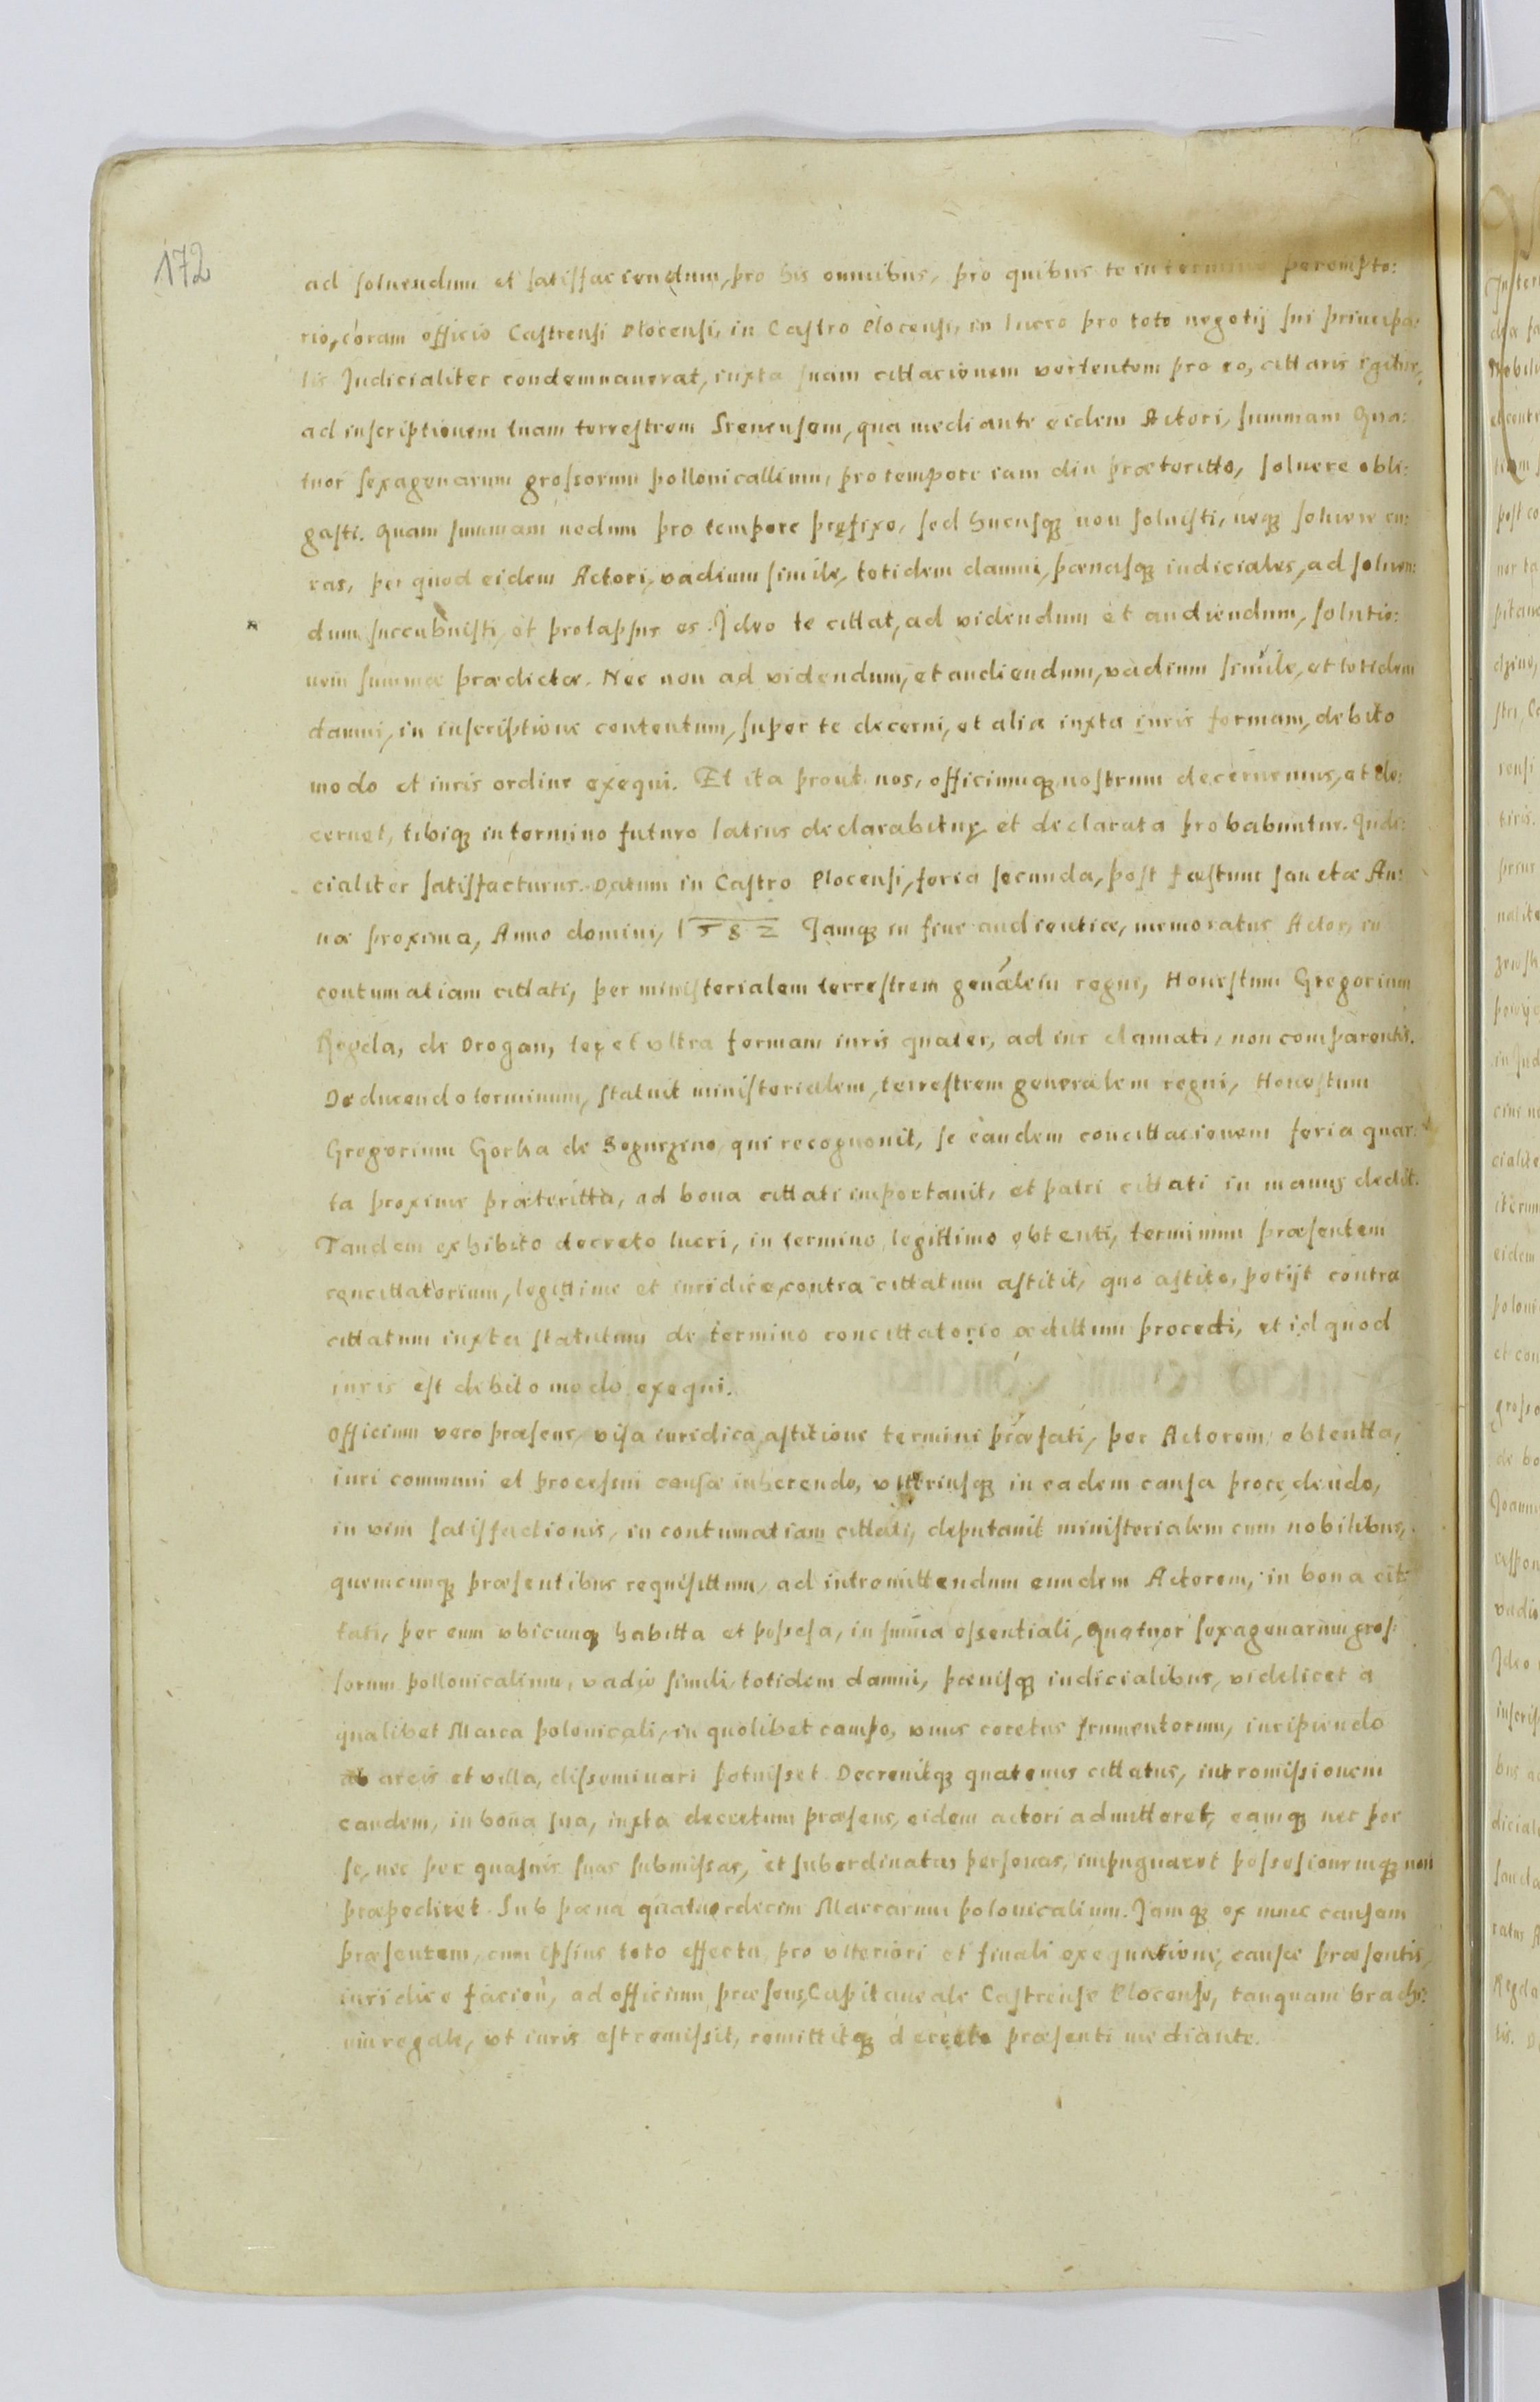 172
ad soluendum et satisfaciendum, pro his omnibus, pro quibus te in termino perempto:
rio, coram officio Castrensi Plocensi, in Castro Plocensi, in lucro pro toto negotij sui principa:
lis Judicialiter condemnauerat, iuxta suam cittacionem vertentem pro eo, cittaris igitur,
ad inscriptionem tuam terrestrem Srenensem, qua mediante eidem Actori, summam Qua:
tuor sexagenarum grossorum pollonicallium, pro tempore iam diu præteritto, soluere obli:
gasti. Quam summam nedum pro tempore prefixo, sed hucusq non soluisti, neq soluere cu:
ras, per quod eidem Actori, vadium simile, totidem damni, pænasq iudiciales, ad soluen:
dum succubuisti, et prolapsus es. Ideo te cittat, ad videndum et audiendum, solutio:
nem summæ prædictæ. Nec non ad videndum, et audiendum, vadium simile, et totidem
damni, in inscriptione contentum, super te decerni, et alia iuxta iuris formam, debito
modo et iuris ordine exequi. Et ita prout nos, officiumq nostrum decernemus, et de:
cernet, tibiq in termino futuro latius declarabitur, et declarata probabuntur. Judi:
cialiter satisfacturus. Datum in Castro Plocensi, feria secunda, post fæstum sanctæ An:
næ proxima, Anno domini, 1582 Jamq in fine audientiæ, memoratus Actor, in
contumatiam cittati, per ministerialem terrestrem genalem regni, Honestum Gregorium
de Drogan, ter et vltra formam iuris quater, ad ius clamati, non comparentis.
Deducendo terminum, statuit ministerialem, terrestrem generalem regni, Honestum
Gregorium Gorka de qui recognouit, se eandem concittacionem feria quar:
ta proxime præteritta, ad bona cittati importauit, et patri cittati in manus dedit.
Tandem exhibito decreto lucri, in termino legittimo obtenti, terminum præsentem
concittatorium, legittime et iuridice, contra cittatum astitit, quo astito, petijt contra
cittatum iuxta statutum de termino concittatorio ædittum procedi, et id quod
iuris est debito modo exequi.
Officium vero præsens, visa iuridica astitione termini præfati, per Actorem obtentta,
iuri communi et processui causæ inherendo, vltteriusq in eadem causa procedendo,
in vim satisfactionis, in contumatiam cittati, deputauit ministerialem cum nobilibus,
quemcunq præsentibus requisittum, ad intromittendum eundem Actorem, in bona cit:
tati, per eum vbicunq habitta et possesa, in suma essentiali, Quatuor sexagenarum gros:
sorum pollonicalium, vadio simili, totidem damni, pænisq iudicialibus, videlicet a
qualibet Marca polonicali, in quolibet campo, vnus coretus frumentorum, incipiendo
ab areis et villa, disseminari potuisset. Decreuitq quatenus cittatus, intromissionem
eandem, in bona sua, iuxta decretum præsens, eidem actori admitteret, eamq nec per
se, nec per quasuis suas submissas, et subordinatas personas, impugnaret possesionemq non
præpediret. Sub pæna quatuordecim Marcarum polonicalium. Jamq ex nunc causam
præsentem, cum ipsius toto effectu, pro vlteriori et finali exequutione, causæ præsentis
iuridice facien, ad officium præsens, Capitaneale Castrense Plocense, tanquam brachi:
um regale, vt iuris est remissit, remittitq decreto præsenti mediante.